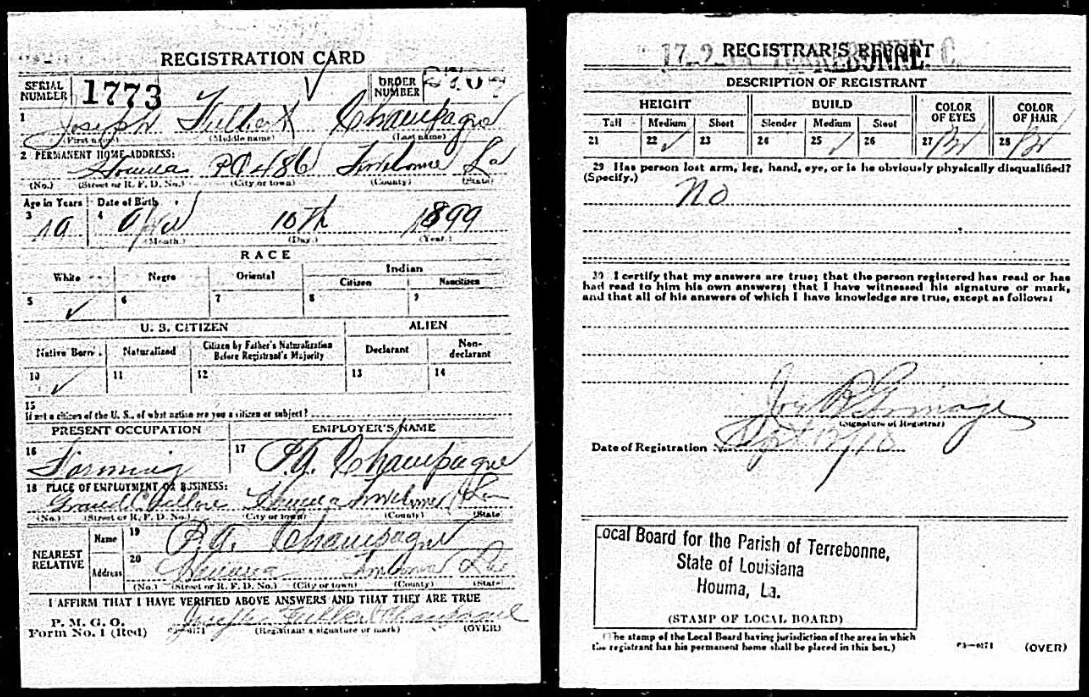 REGISTRATION CARD
SERIAL NUMBER 1773 ORDER NUMBER
1 Joseph Champagne
(First name) (Middle name) (Last name)
2 PERMANENT HOME ADDRESS:
Houma PO 486 Terrebonne La
(No.) (Street or R. F. D. No.) (City or town) (County) (State)
Age in Years Date of Birth
3 19 4 April 10th 1899
(Month.) (Day.) (Year.)
RACE
White Negro Oriental Indian
Citizen Noncitizen
5 ✓ 6 7 8 9
U. S. CITIZEN ALIEN
Native Born Naturalized Citizen by Father's Naturalization Before Registrant's Majority Declarant Non-declarant
10 ✓ 11 12 13 14
15
If not a citizen of the U. S., of what nation are you a citizen or subject?
PRESENT OCCUPATION EMPLOYER'S NAME
16 Farming 17 P.A. Champagne
18 PLACE OF EMPLOYMENT OR BUSINESS:
Grand Caillou Houma Terrebonne La
(No.) (Street or R. F. D. No.) (City or town) (County) (State)
NEAREST RELATIVE Name 19 P.A. Champagne
Address 20 Houma Terrebonne La
(No.) (Street or R. F. D. No.) (City or town) (County) (State)
I AFFIRM THAT I HAVE VERIFIED ABOVE ANSWERS AND THAT THEY ARE TRUE
P. M. G. O.
Form No. 1 (Red) Joseph Champagne
(Registrant's signature or mark) (OVER)
REGISTRAR'S REPORT
17 TERREBONNE. C
DESCRIPTION OF REGISTRANT
HEIGHT BUILD COLOR OF EYES COLOR OF HAIR
Tall Medium Short Slender Medium Stout
21 22 ✓ 23 24 25 ✓ 26 27 Br 28 Br
29 Has person lost arm, leg, hand, eye, or is he obviously physically disqualified?
(Specify.) No
30 I certify that my answers are true; that the person registered has read or has
had read to him his own answers; that I have witnessed his signature or mark,
and that all of his answers of which I have knowledge are true, except as follows:
(Signature of Registrar)
Date of Registration Sept 12/18
Local Board for the Parish of Terrebonne,
State of Louisiana
Houma, La.
(STAMP OF LOCAL BOARD)
(The stamp of the Local Board having jurisdiction of the area in which
the registrant has his permanent home shall be placed in this box.)
03—6171 (OVER)